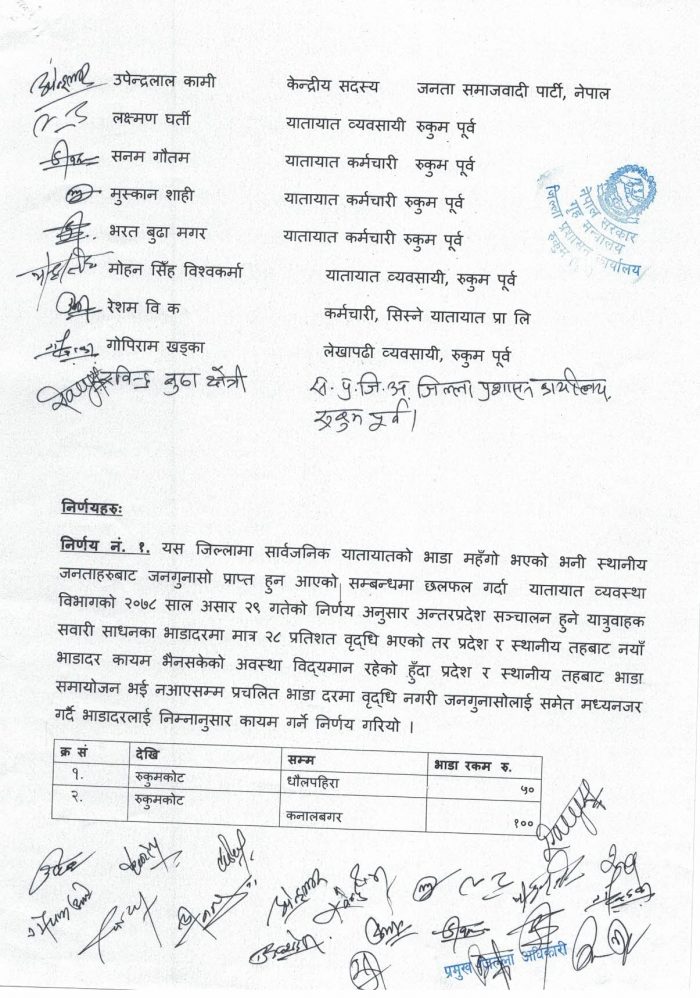 उपेन्द्रलाल कामी केन्द्रीय सदस्य जनता समाजवादी पार्टी, नेपाल
लक्ष्मण घर्ती यातायात व्यवसायी रुकुम पूर्व
सनम गौतम यातायात कर्मचारी रुकुम पूर्व
मुस्कान शाही यातायात कर्मचारी रुकुम पूर्व
भरत बुढा मगर यातायात कर्मचारी रुकुम पूर्व
मोहन सिँह विश्वकर्मा यातायात व्यवसायी, रुकुम पूर्व
रेशम वि क कर्मचारी, सिस्ने यातायात प्रा लि
गोपिराम खड्का लेखापढी व्यवसायी, रुकुम पूर्व
रविन्द्र बुढा क्षेत्री स. प्र. जि. अ. जिल्ला प्रशासन कार्यालय,
रुकुम पूर्व।
नेपाल सरकार
गृह मन्त्रालय
जिल्ला प्रशासन कार्यालय
रुकुम
निर्णयहरुः
निर्णय नं. १. यस जिल्लामा सार्वजनिक यातायातको भाडा महँगो भएको भनी स्थानीय
जनताहरुबाट जनगुनासो प्राप्त हुन आएको सम्बन्धमा छलफल गर्दा यातायात व्यवस्था
विभागको २०७८ साल असार २९ गतेको निर्णय अनुसार अन्तरप्रदेश सञ्चालन हुने यात्रुवाहक
सवारी साधनका भाडादरमा मात्र २८ प्रतिशत वृद्धि भएको तर प्रदेश र स्थानीय तहबाट नयाँ
भाडादर कायम भैनसकेको अवस्था विद्यमान रहेको हुँदा प्रदेश र स्थानीय तहबाट भाडा
समायोजन भई नआएसम्म प्रचलित भाडा दरमा वृद्धि नगरी जनगुनासोलाई समेत मध्यनजर
गर्दै भाडादरलाई निम्नानुसार कायम गर्ने निर्णय गरियो ।
क्र सं देखि सम्म भाडा रकम रु.
१. रुकुमकोट धौलपहिरा ५०
२. रुकुमकोट कनालबगर १००
प्रमुख जिल्ला अधिकारी